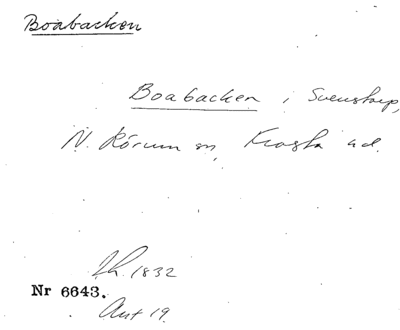 Boabacken
Boabacken i Svenstorp,
N. Rörum sn, Frosta hd.
Lh. 1832
Nr 6643.
Akt 19.